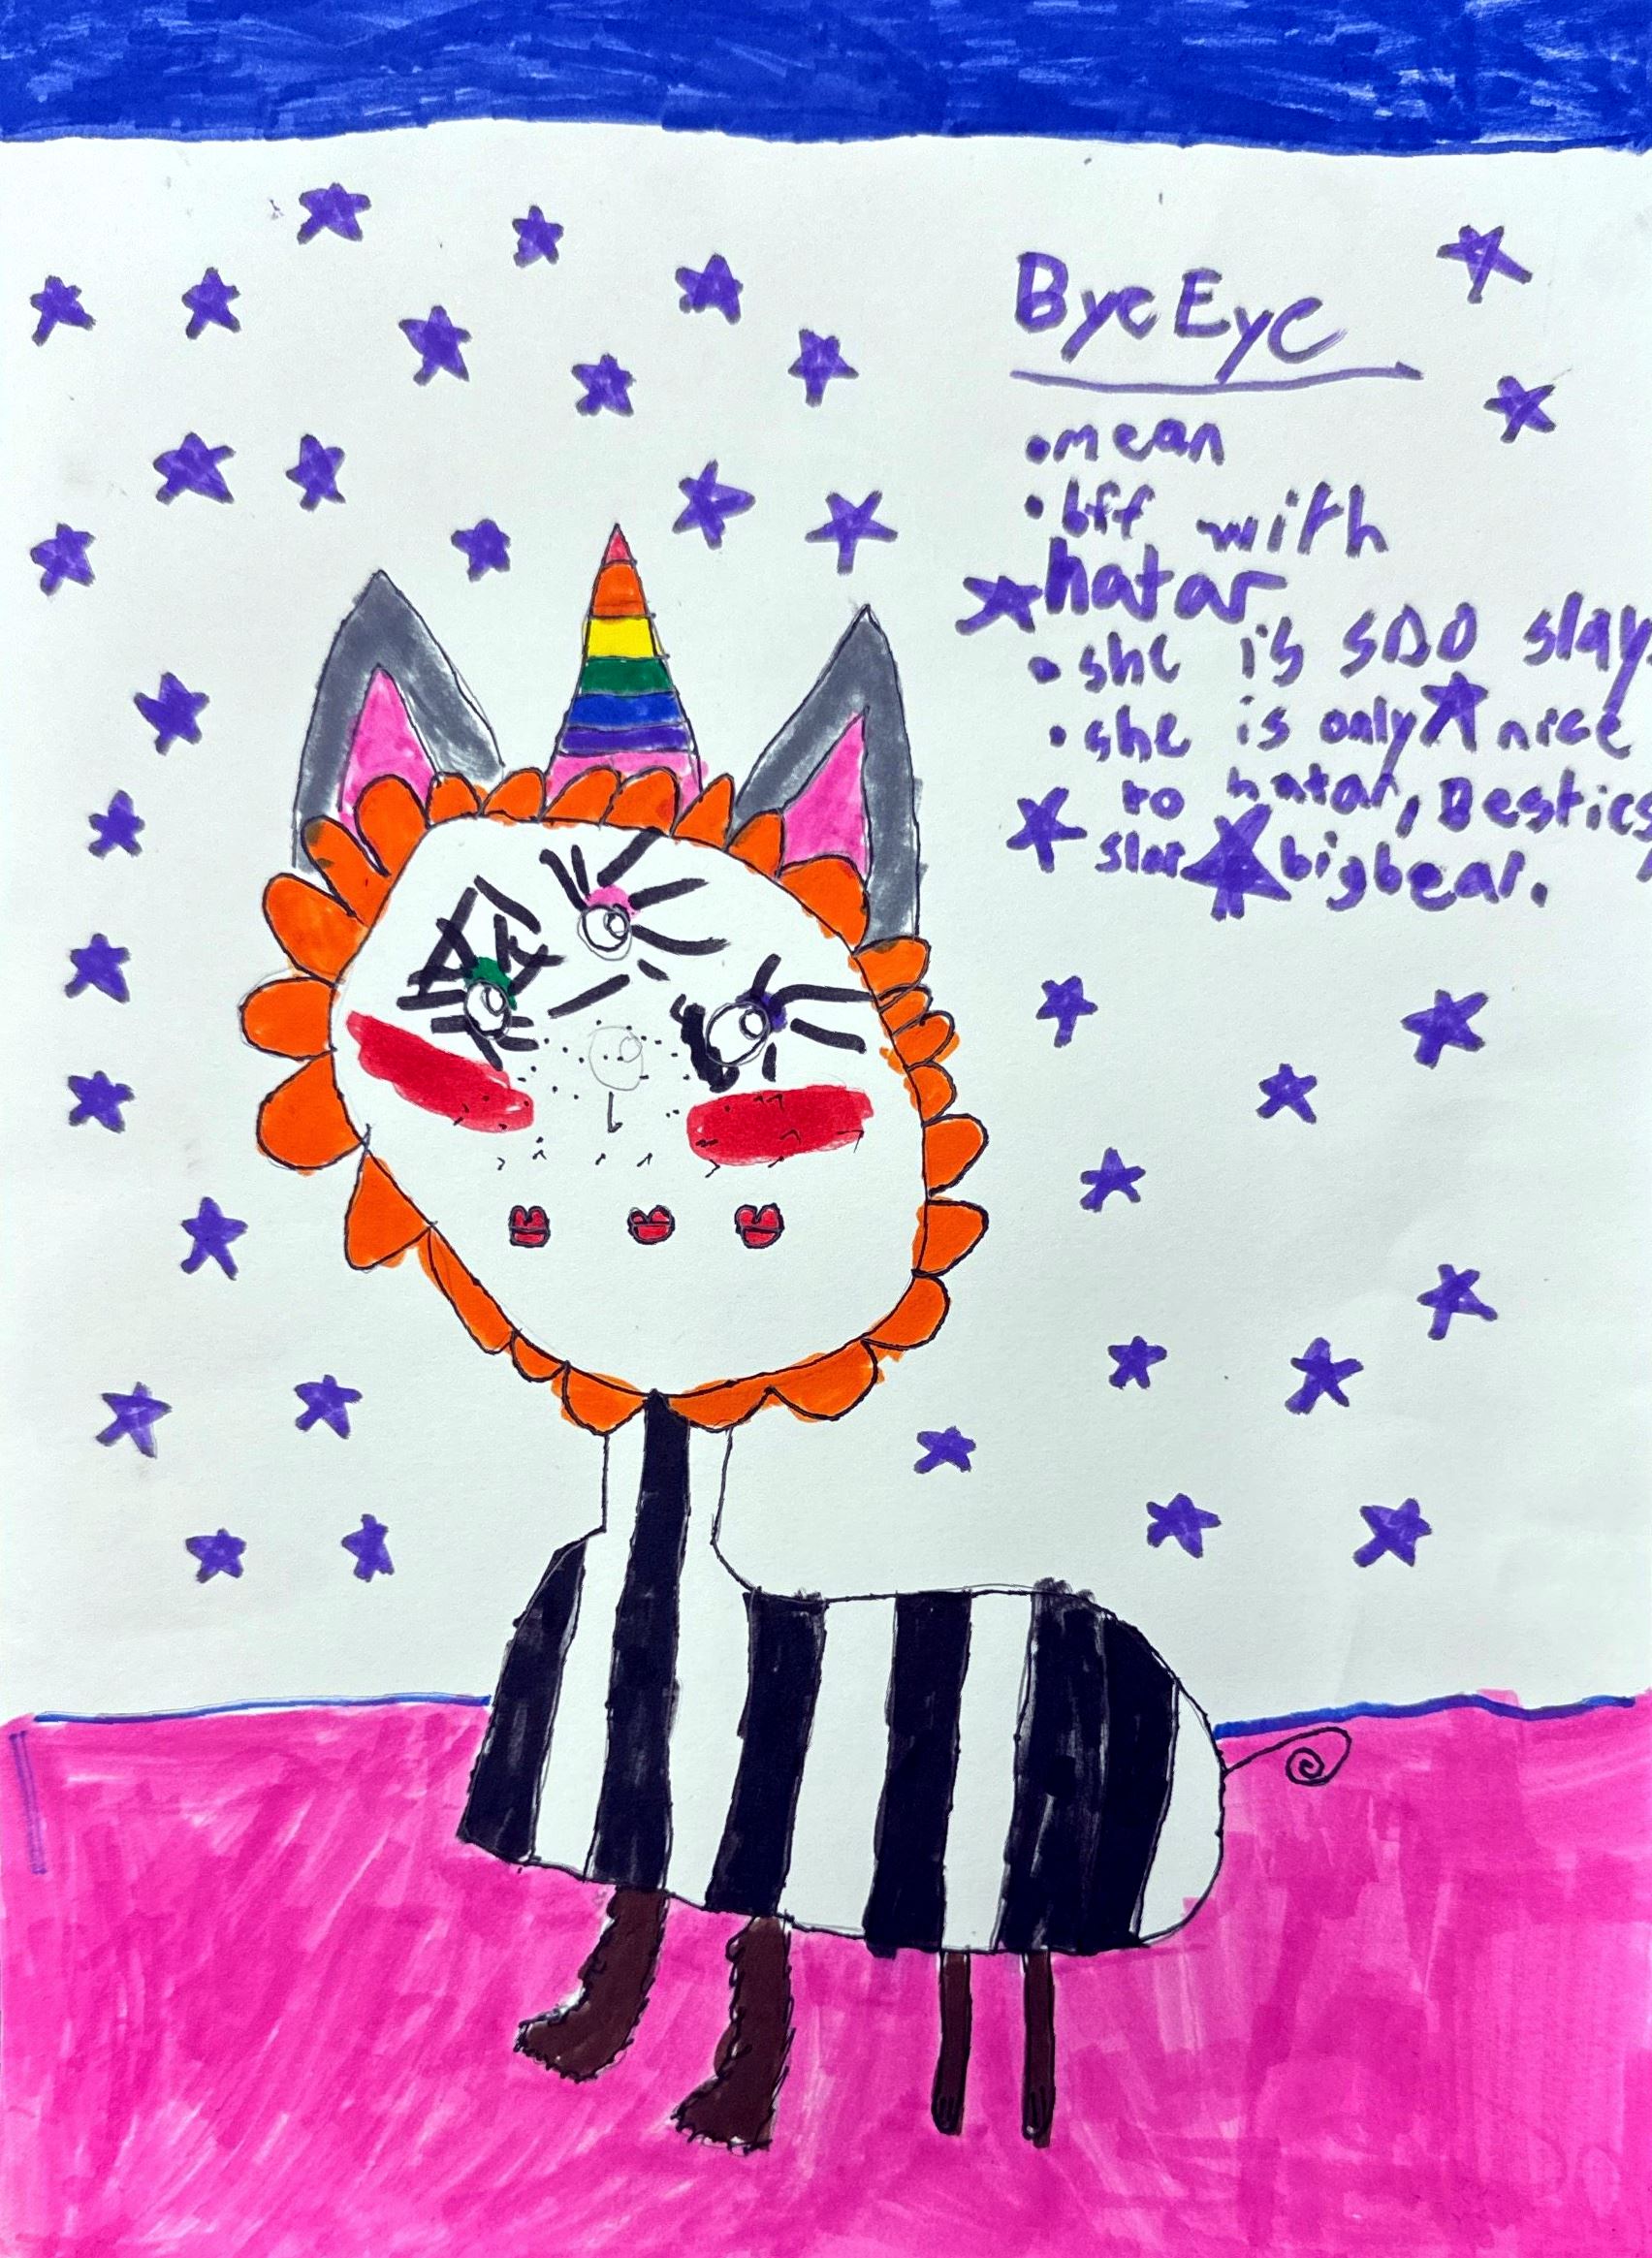 ByeEye
•mean
•bff with
hatar
•she is soo slay.
•she is only nice
to hatar, Besties,
slar bigbear.